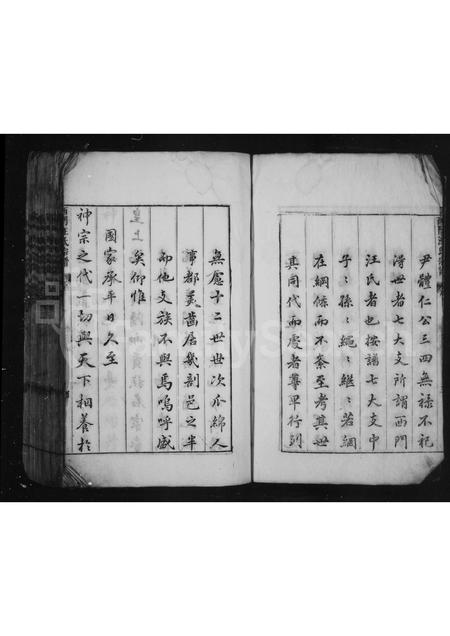 尹體仁公三四無祿不祀
得世者七大支所謂西門
汪氏者也按譜七大支中
子〻孫〻繩〻繼〻若綱
在綱條而不紊至考其世
其同代而處者尊卑行列
無慮十二世世次瓜綿人
郁他支族不與焉嗚呼盛
矣仰惟
皇上
國家承平日久至
神宗之代一切與天下相養於